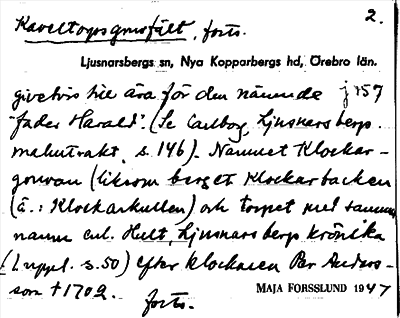 Kaveltorpsgruvfält, forts. 2.
Ljusnarsbergs sn, Nya Kopparbergs hd, Örebro län.
givetvis till ära för den nämnde j 157
"fader Harald". (Se Carlborg, Ljusnarsbergs
malmtrakt, s. 146). Namnet Klockar-
gruvan (liksom berget Klockarbacken
(ä.: Klockarkullen) och torpet med samma
namn enl. Hult, Ljusnarsbergs krönika
(1 uppl. s. 50) efter klockaren Per Anders-
son † 1702.
forts. MAJA FORSSLUND 1947